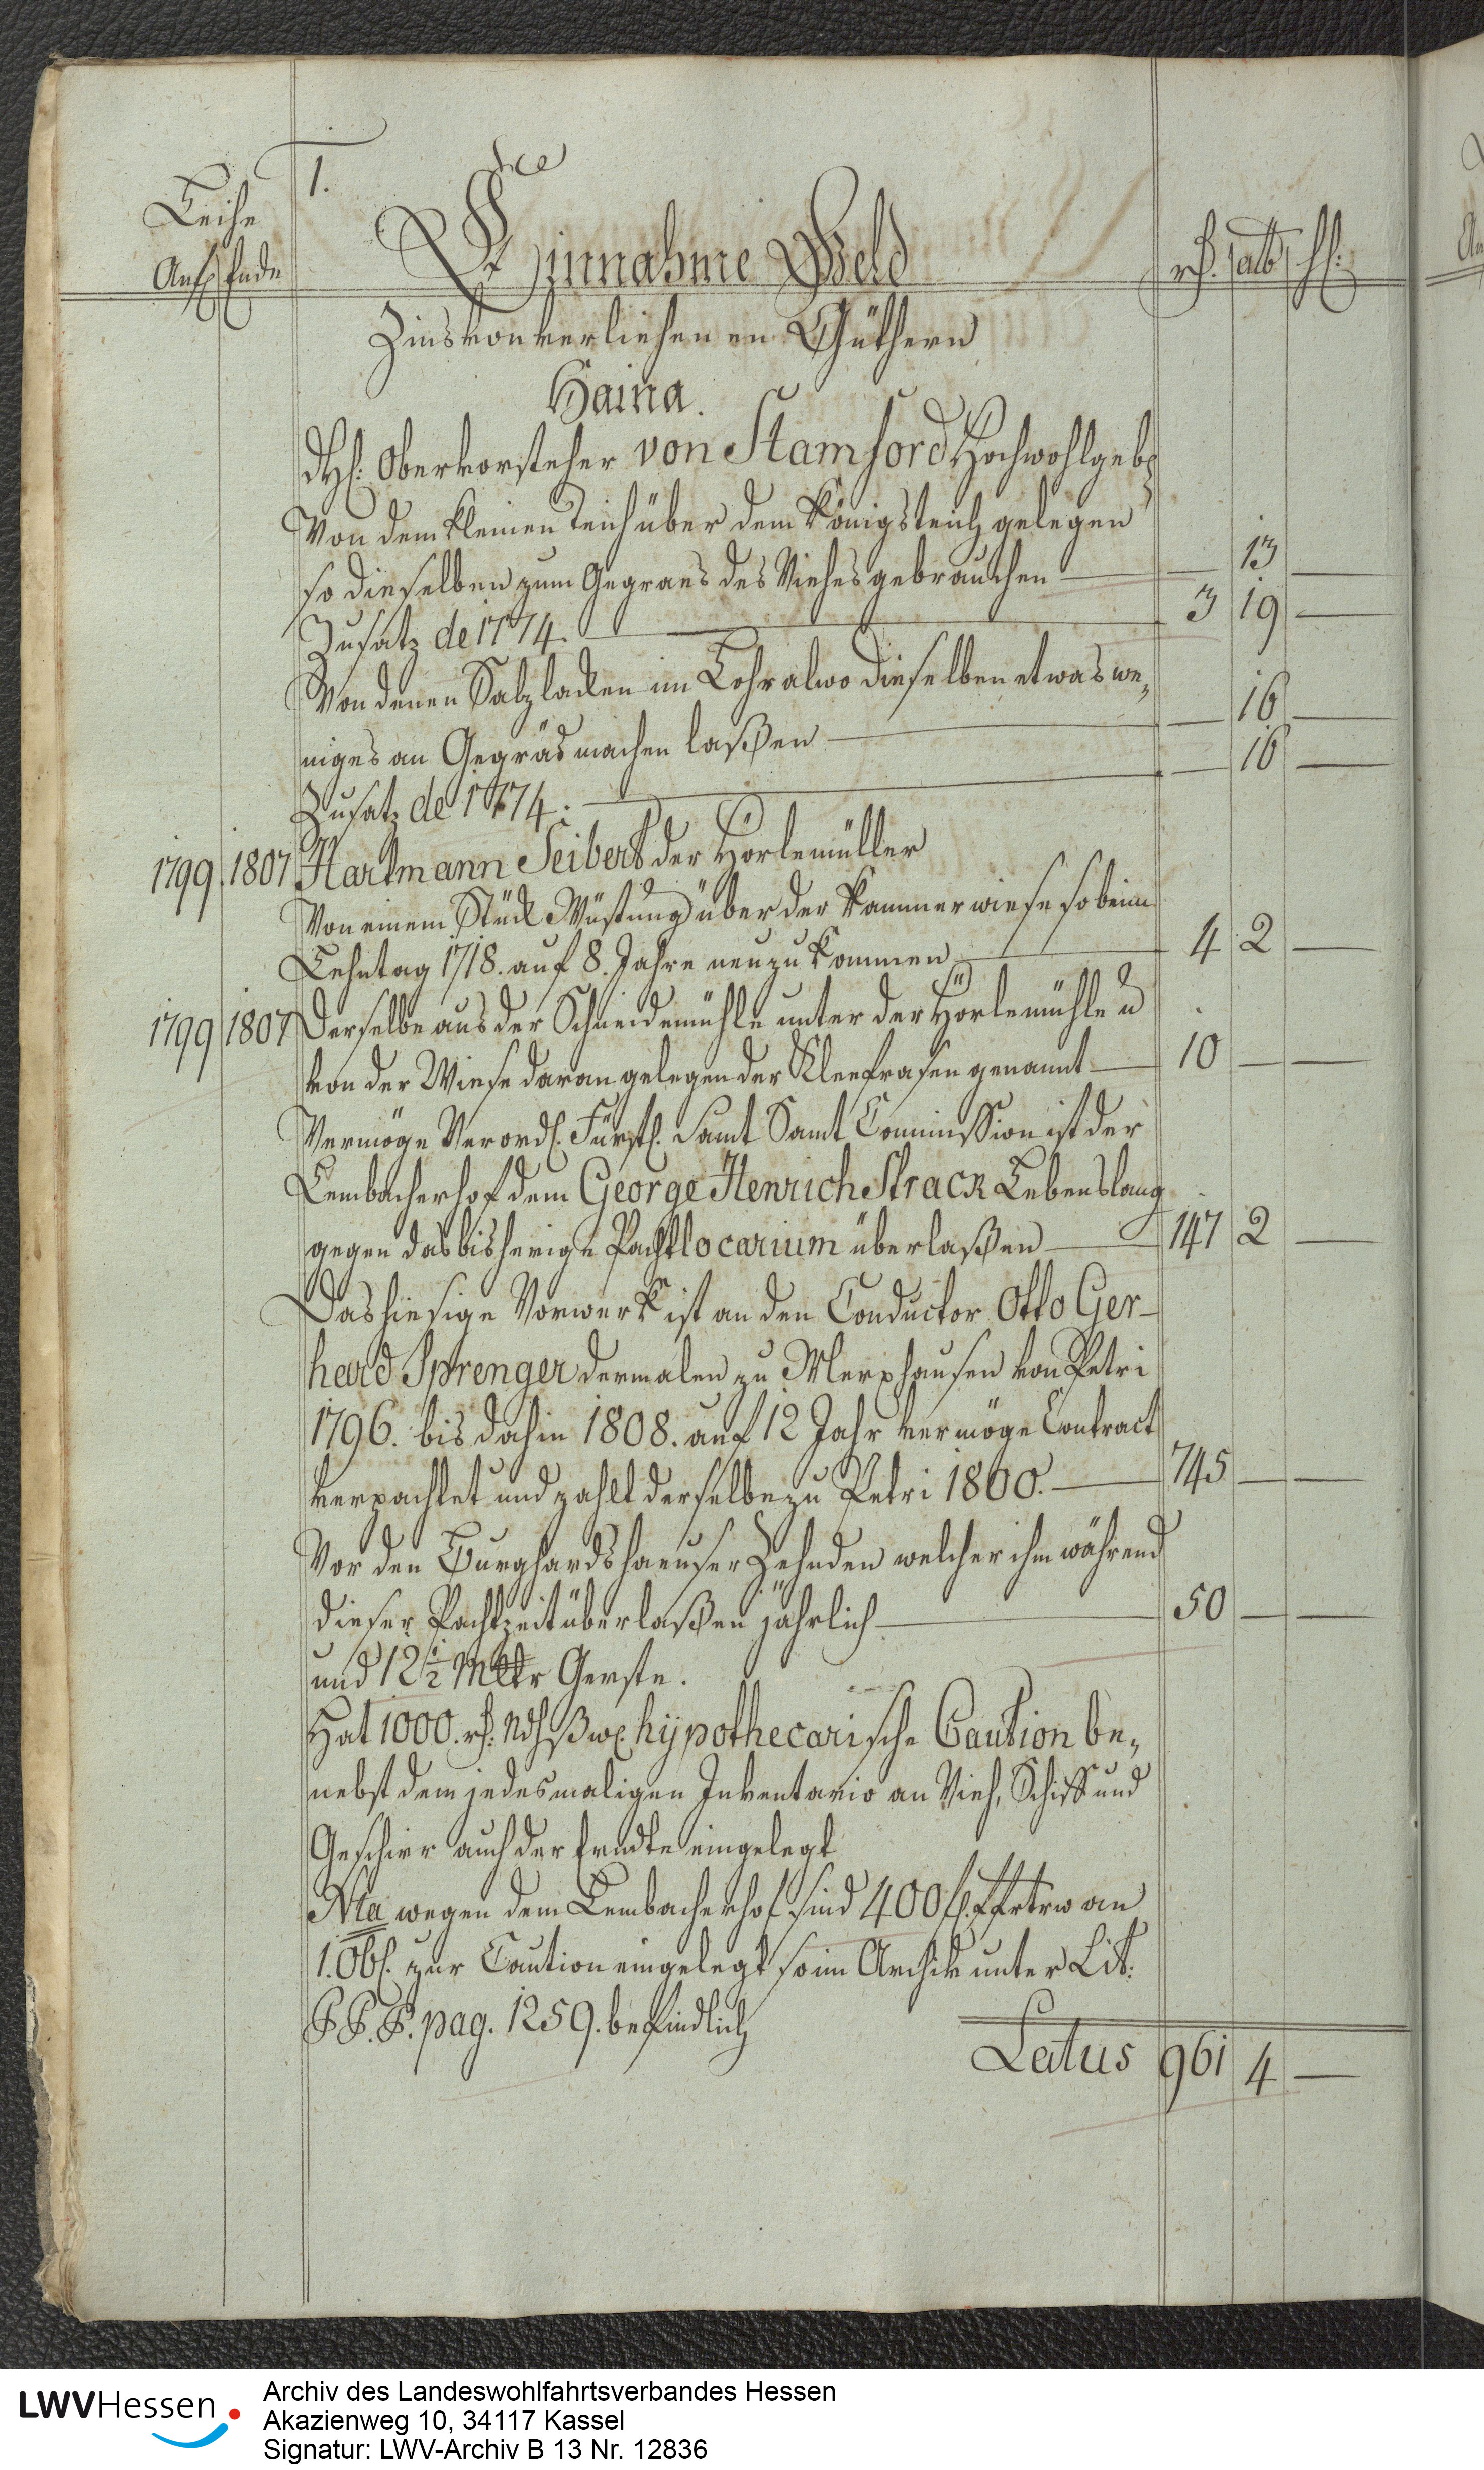 1.
Leihe
Anf. Ende
Einnahme Geld
rh. alb hl:
Zins von verliehenen Güthern
Haina.
H. Obervorsteher von Stamford Hochwohlgeb.
Von dem kleinen Teich über dem Königsteich gelegen
so dieselben zum Gegraes des Viehes gebrauchen — — 13 —
Zusatz de 1774. — 3 19 —
Von denen Salzlacken im Lohr alwo dieselben etwas we,,
niges an Gegräs machen laßen — — 16 —
Zusatz de 1774: — — 16 —
1799. 1807 Hartmann Seibert der Hörlemüller
Von einem Stück Wüstung über der Kammerwiese so beim
Lehntag 1718. auf 8. Jahre neu zu kommen — 4 2 —
1799 1807 Derselbe aus der Schneidemühle unter der Hörlemühle u
von der Wiese daran gelegen der genannt — 10 — —
Vermöge Verord. Fürstl. Samt Samt Commission ist der
Lembacherhof dem George Henrich Strack Lebenslang
gegen das bisherige Pachtlocarium überlaßen — 147 2 —
Das hiesige Vorwerk ist an den Conductor Otto Ger-
hard Sprenger dermalen zu Merxhausen von Petri
1796. bis dahin 1808. auf 12 Jahr vermöge Contract
verpachtet und zahlt derselbe zu Petri 1800. — 745 — —
Vor den Burghardshaeuser Zehnden welcher ihm während
dieser Pachtzeit überlaßen jährlich — 50 — —
und 12 1/2 Mltr Gerste.
Hat 1000. rh. hypothecarische Caution be,,
nebst dem jedesmaligen Inventario an Vieh, Schiff und
Geschirr auch der Erndte eingelegt
Nta wegen dem Lembacherhof sind 400 fl. an
1. Obl. zur Caution eingelegt so im Archiv unter Lit:
pag. 1259. befindlich
Latus 961 4 —
LWVHessen
Archiv des Landeswohlfahrtsverbandes Hessen
Akazienweg 10, 34117 Kassel
Signatur: LWV-Archiv B 13 Nr. 12836